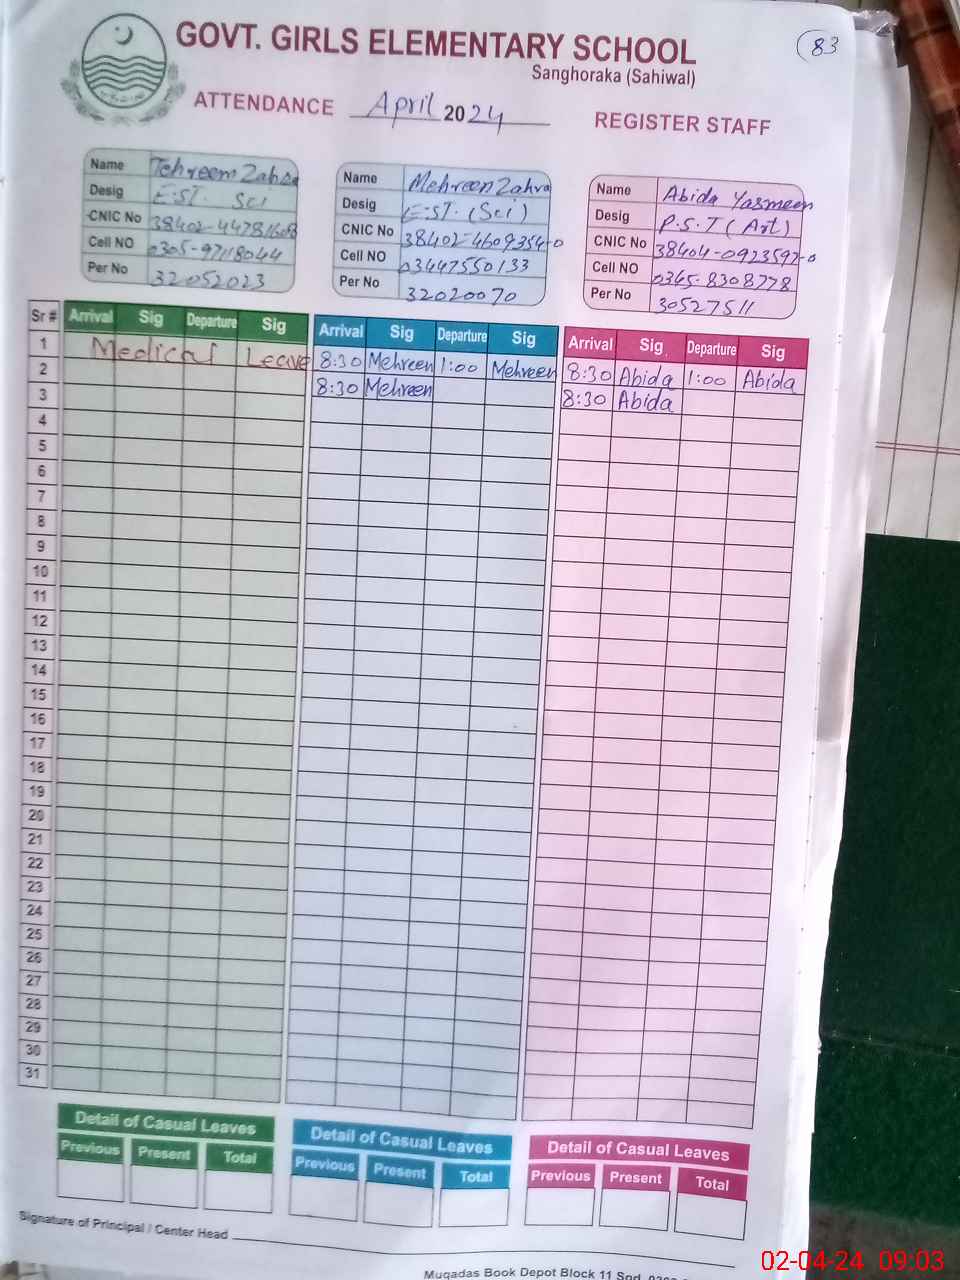 GOVT. GIRLS ELEMENTARY SCHOOL
83
Sanghoraka (Sahiwal)
ATTENDANCE April 2024 REGISTER STAFF
Name Tehreem Zahra
Desig E.S.T. Sci
CNIC No 38402-4478160-8
Cell NO 0305-9718044
Per No 32052023
Name Mehreen Zahra
Desig E.S.T. (Sci)
CNIC No 38402-4609354-0
Cell NO 03447550133
Per No 32020070
Name Abida Yasmeen
Desig P.S.T (Art)
CNIC No 38404-0923592-0
Cell NO 0345-8308778
Per No 30527511
Sr # Arrival Sig Departure Sig Arrival Sig Departure Sig Arrival Sig Departure Sig
1 Medical Leave 8:30 Mehreen 1:00 Mehreen 8:30 Abida 1:00 Abida
2 8:30 Mehreen 8:30 Abida
3
4
5
6
7
8
9
10
11
12
13
14
15
16
17
18
19
20
21
22
23
24
25
26
27
28
29
30
31
Detail of Casual Leaves Detail of Casual Leaves Detail of Casual Leaves
Previous Present Total Previous Present Total Previous Present Total
Signature of Principal / Center Head
Muqadas Book Depot Block 11
02-04-24 09:03